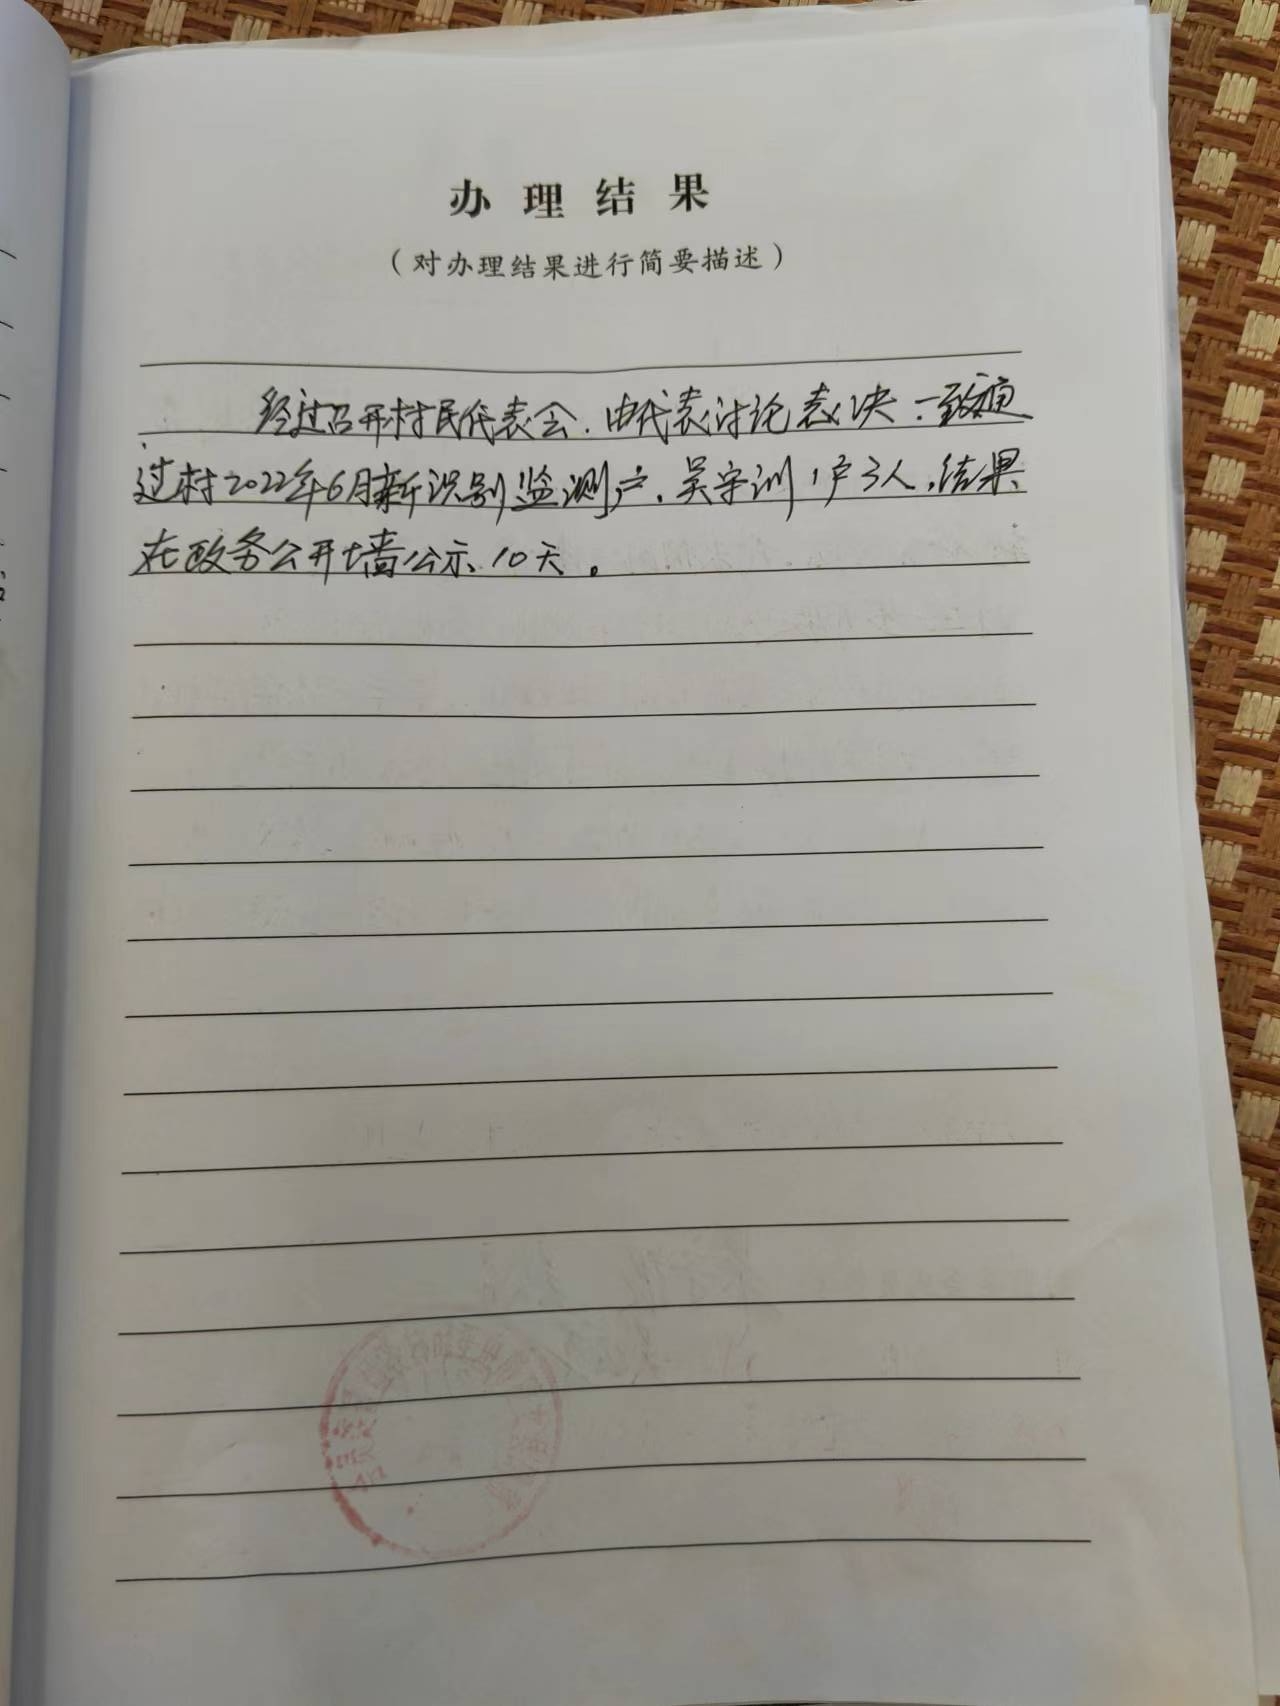 办理结果
（对办理结果进行简要描述）
经过召开村民代表会，由代表讨论表决，一致通
过村2022年6月新识别监测户，吴宇训1户3人，结果
在政务公开墙公示10天。